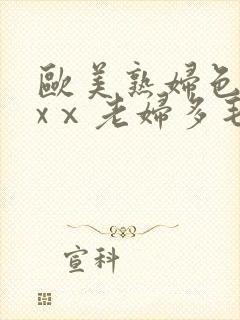 歐美熟婦色
xx 老婦多毛
宣科